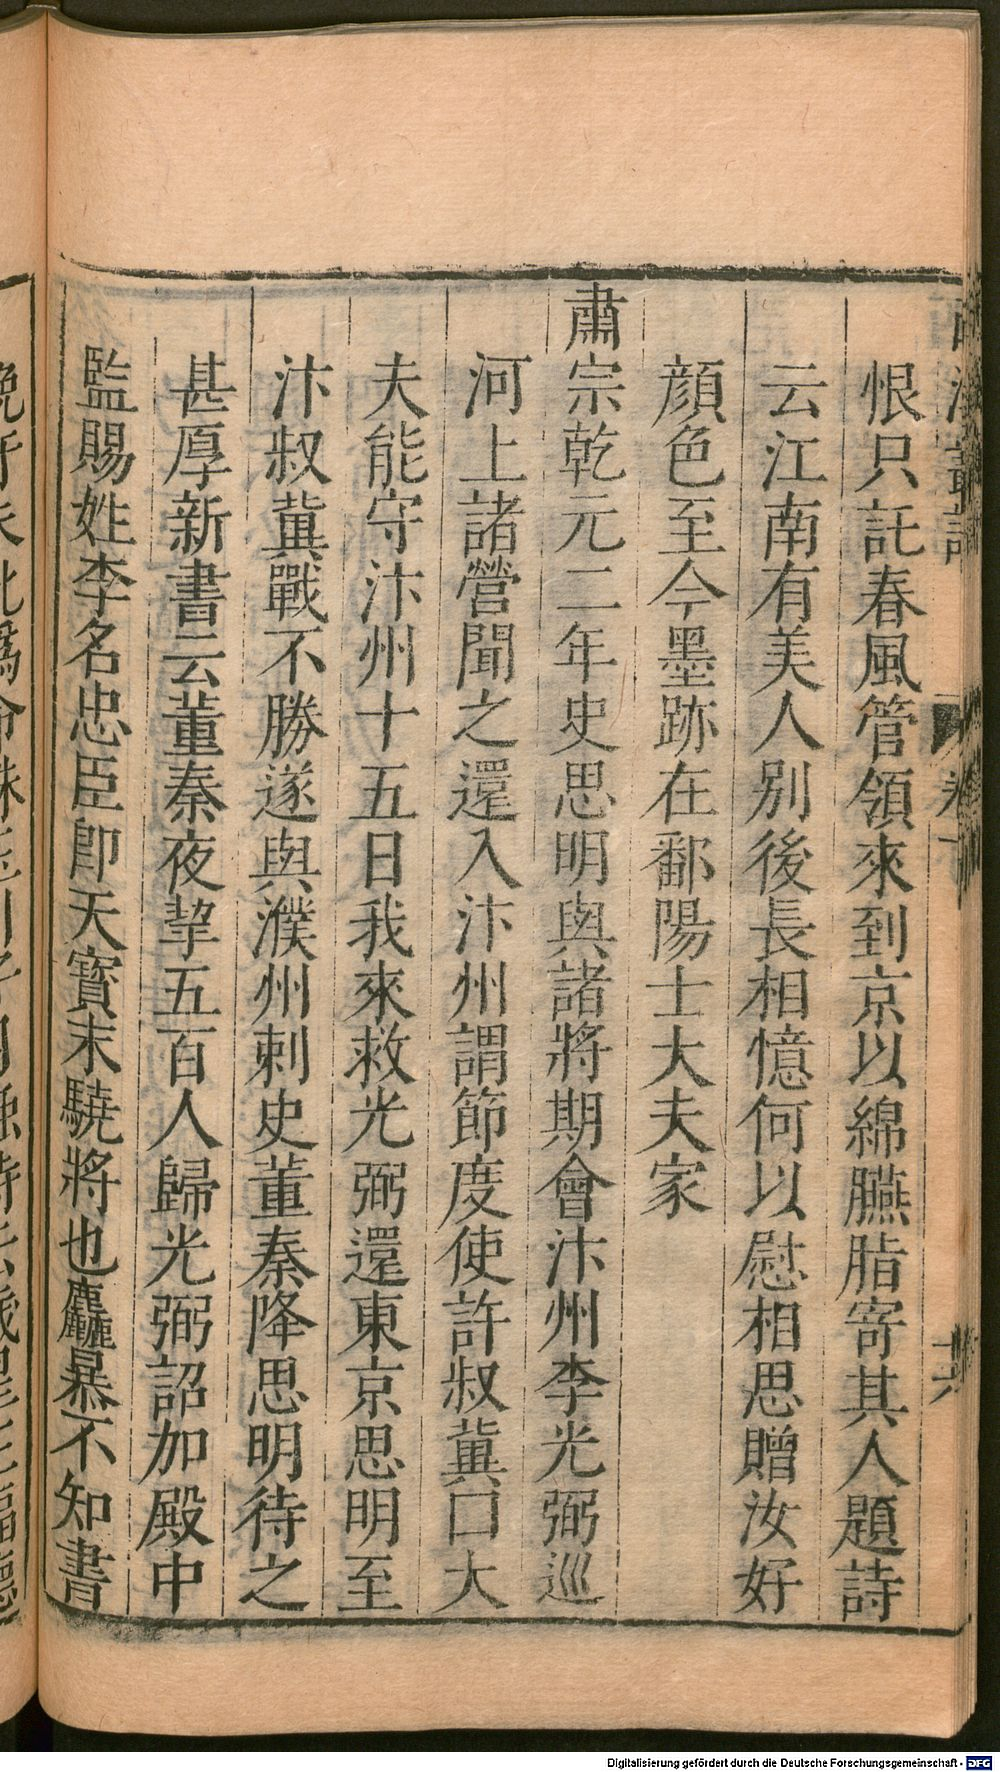 恨只託春風管領來到京以綿臙脂寄其人題詩
云江南有美人別後長相憶何以慰相思贈汝好
顔色至今墨跡在鄱陽士大夫家
肅宗乾元二年史思明與諸將期會汴州李光弼巡
河上諸營聞之還入汴州謂節度使許叔冀口大
夫能守汴州十五日我來救光弼還東京思明至
汴叔冀戰不勝遂與濮州刺史董秦降思明待之
甚厚新書云董秦夜挈五百人歸光弼詔加殿中
監賜姓李名忠臣卽天寶末驍將也麤暴不知書
Digitalisierung gefördert durch die Deutsche Forschungsgemeinschaft - DFG